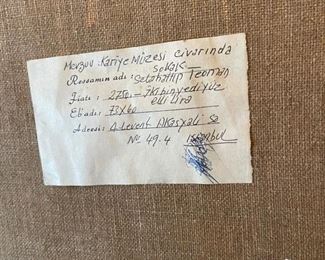 Mevzuu: Kariye Müzesi civarında
sokak
Ressamın adı: Selahattin Teoman
Fiatı: 2750 - İkibinyediyüz
elli lira
Eb'adı: 73x60
Adresi: 4. Levent Akasyalı So
No. 49.4 İstanbul